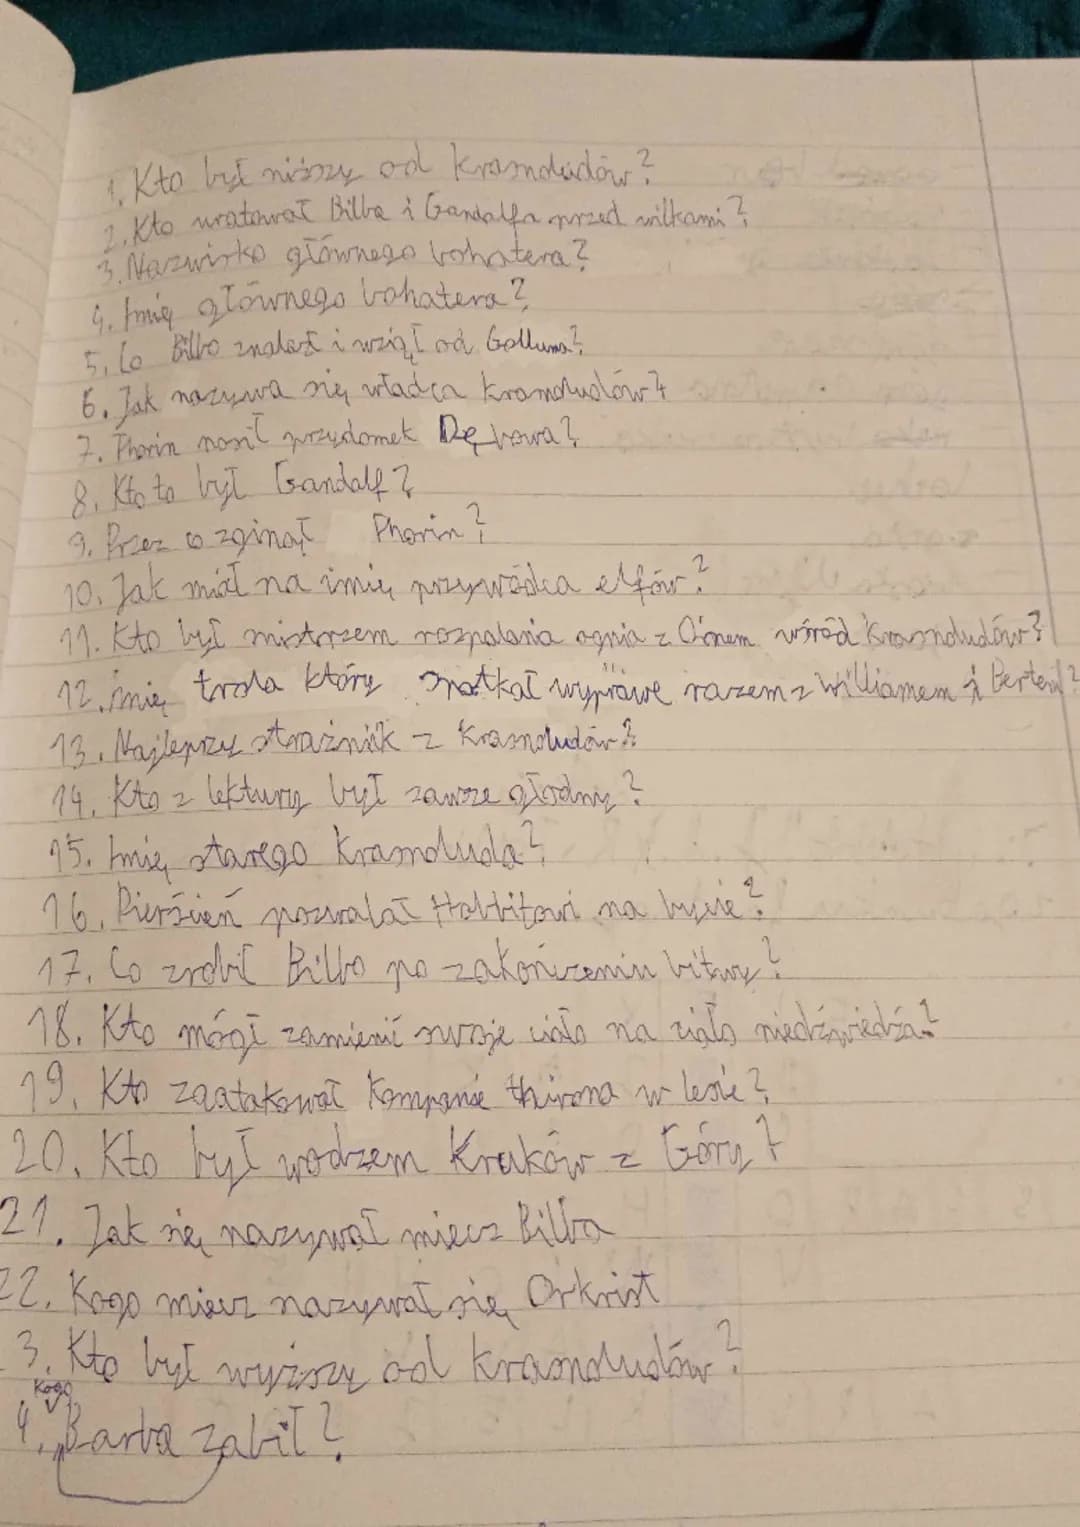 1. Kto był niższy od krasnoludów?
2. Kto uratował Bilba i Gandalfa przed wilkami?
3. Nazwisko głównego bohatera?
4. Imię głównego bohatera?
5. Co Bilbo znalazł i wziął od Golluma?
6. Jak nazywa się władca krasnoludów?
7. Thorin nosił przydomek Dębowa?
8. Kto to był Gandalf?
9. Przez co zginął Thorin?
10. Jak miał na imię przywódca elfów?
11. Kto był mistrzem rozpalania ognia z Oinem wśród krasnoludów?
12. imię trola który spotkał wyprawe razem z Williamem i Bertem?
13. Najlepszy strażnik z krasnoludów?
14. Kto z lektury był zawsze głodny?
15. Imię starego krasnoluda?
16. Pierścień pozwalał Hobbitowi na bycie?
17. Co zrobił Bilbo po zakończeniu bitwy?
18. Kto mógł zamienić swoje ciało na ciało niedźwiedzia?
19. Kto zaatakował kompanie thirona w lesie?
20. Kto był wodzem Kruków z Góry?
21. Jak się nazywał miecz Bilba
22. Kogo miecz nazywał się Orkrist
3. Kto był wyższy od krasnoludów?
Kogo
4. Barba zabił?